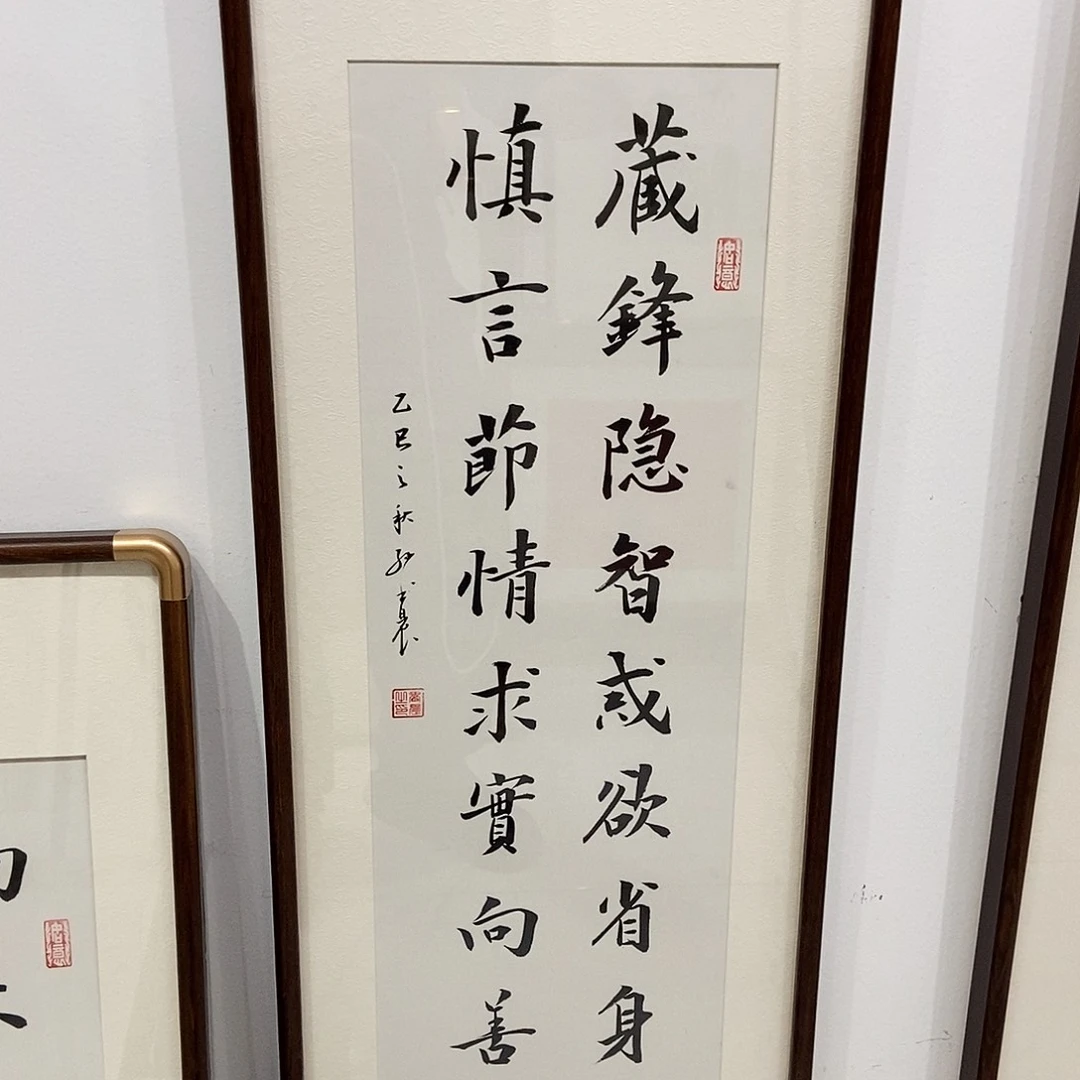 藏鋒隐智戒欲省身
慎言節情求實向善
乙巳之秋